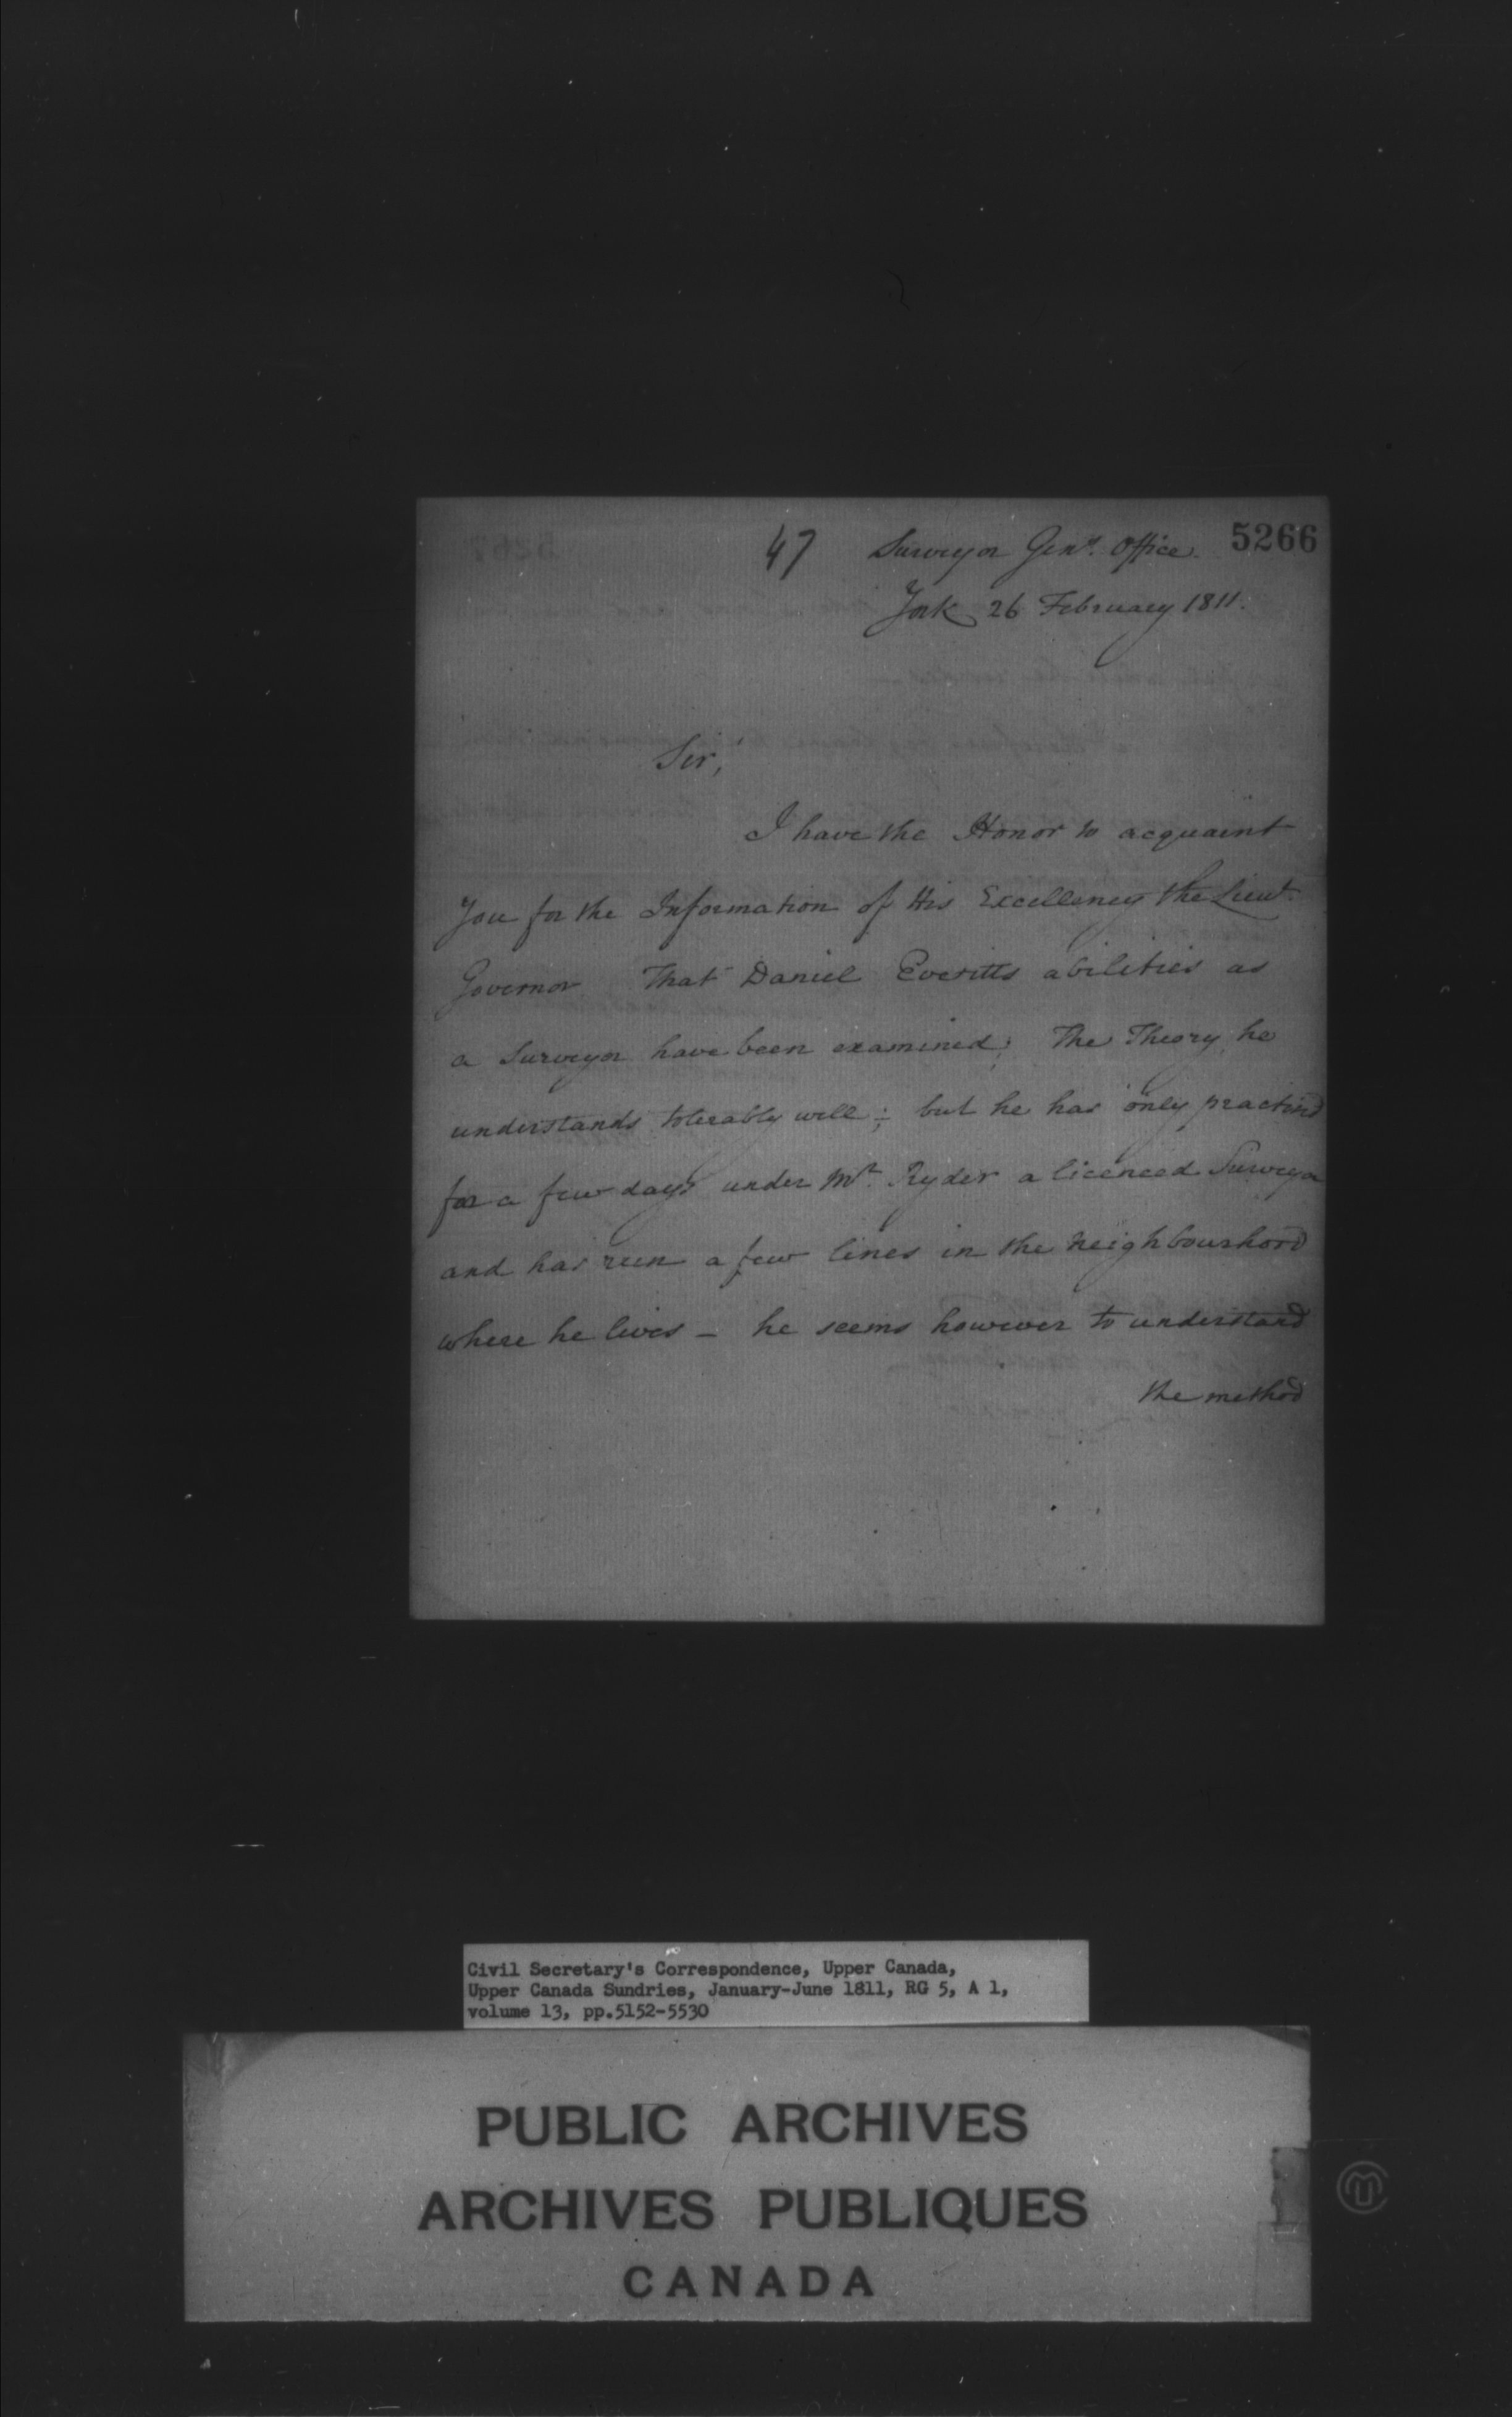 47 Surveyor Genl. Office. 5266
York 26 February 1811.
Sir,
I have the Honor to acquaint
You for the Information of His Excellency the Lieut.
Governor That Daniel Everitts abilities as
a Surveyor have been examined; The Theory he
understands tolerably well; but he has only practised
for a few days under Mr. Ryder a licenced Surveyor
and has run a few lines in the Neighbourhood
where he lives – he seems however to understand
the method
Civil Secretary's Correspondence, Upper Canada,
Upper Canada Sundries, January-June 1811, RG 5, A 1,
volume 13, pp.5152-5530
PUBLIC ARCHIVES
ARCHIVES PUBLIQUES
CANADA